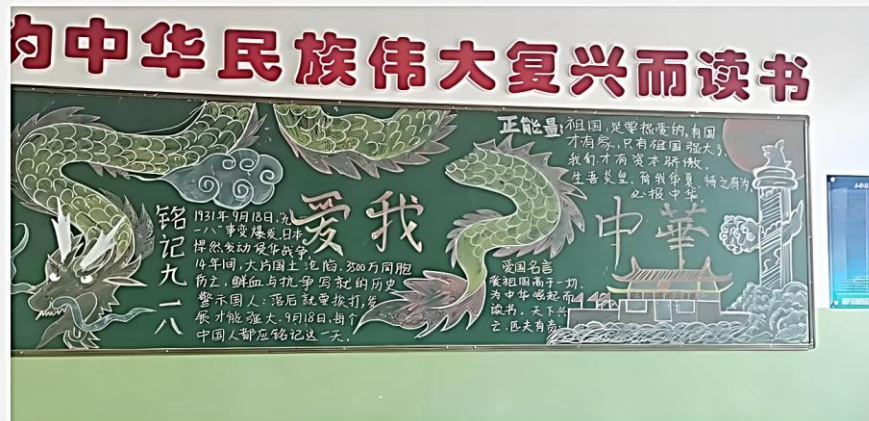 为中华民族伟大复兴而读书
铭记九一八
1931年9月18日,九
一八"事变爆发,日本
悍然发动侵华战争
14年间,大片国土沦陷,3500万同胞
伤亡,鲜血与抗争写就的历史
警示国人:落后就要挨打,发
展才能强大.9月18日,每个
中国人都应铭记这一天.
爱我
中華
正能量:祖国,是要热爱的,有国
才有家,只有祖国强大了,
我们才有资本骄傲.
生吾炎皇,育我华夏,倘之有为
必报中华.
爱国名言
爱祖国高于一切.
为中华崛起而
读书.天下兴
亡,匹夫有责.